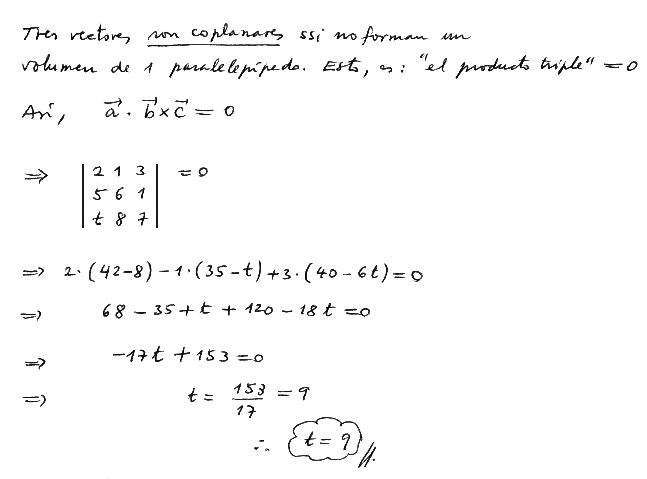 Tres vectores son coplanares ssi no forman un
volumen de 1 paralelepípedo. Esto, es: "el producto triple" = 0
Así, a⃗ · b⃗ × c⃗ = 0
⇒ | 2 1 3 | = 0
| 5 6 1 |
| t 8 7 |
⇒ 2·(42-8) - 1·(35-t) + 3·(40-6t) = 0
⇒ 68 - 35 + t + 120 - 18t = 0
⇒ -17t + 153 = 0
⇒ t = 153/17 = 9
∴ t = 9 //.